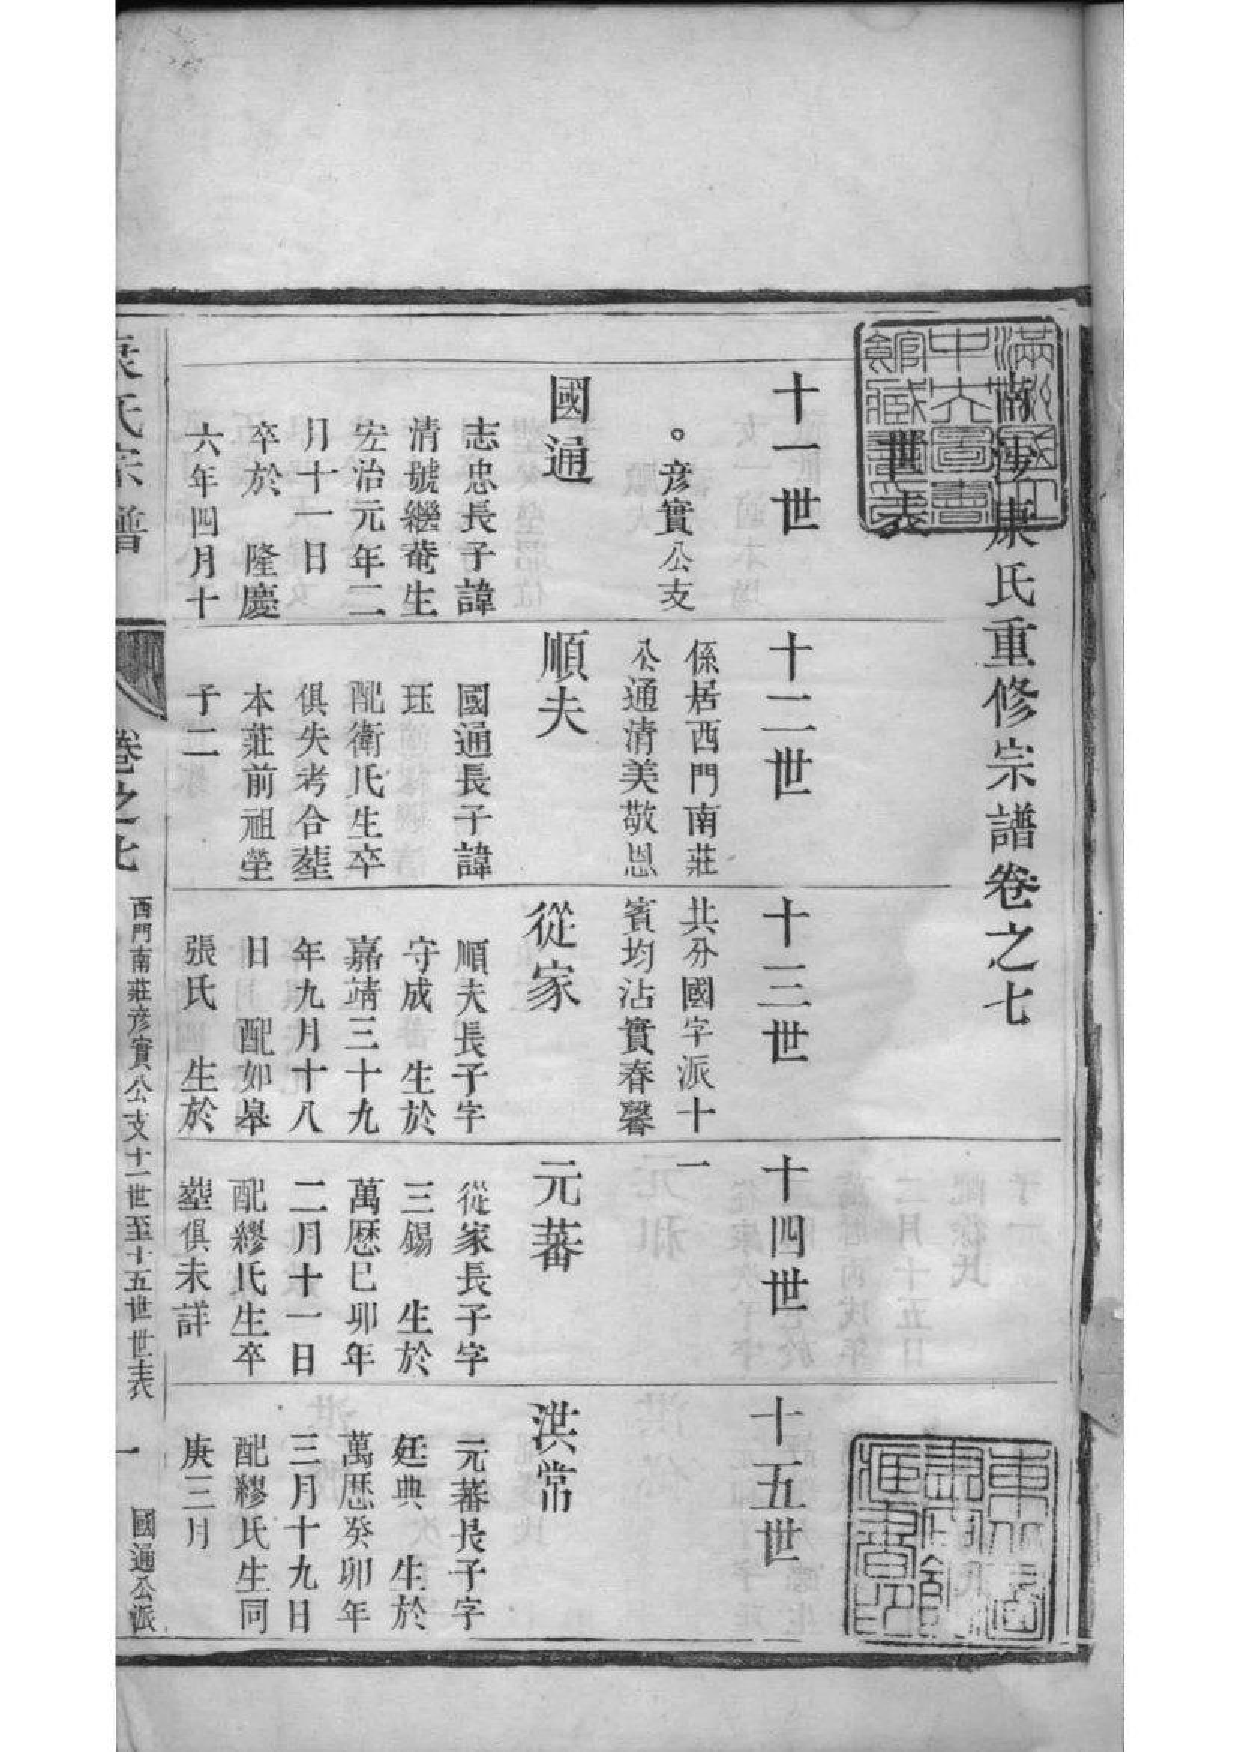 南沙康氏重修宗譜卷之七
世表
十一世
十二世
十三世
十四世
十五世
。彥實公支係居西門南莊共分國字派十一
公通清美敬恩賓均沾實春馨
國通
志忠長子諱
清號繼菴生
宏治元年二
月十一日
卒於 隆慶
六年四月十
順夫
國通長子諱
珏
配衛氏生卒
俱失考合塟
本莊前祖塋
子二
從家
順夫長子字
守成 生於
嘉靖三十九
年九月十八
日 配如皋
張氏 生於
元蕃
從家長子字
三錫 生於
萬歷已卯年
二月十一日
配繆氏生卒
塟俱未詳
洪常
元蕃長子字
廷典 生於
萬歷癸卯年
三月十九日
配繆氏生同
庚三月
氏宗譜
卷之七
西門南莊彥實公支十一世至十五世世表
一
國通公派